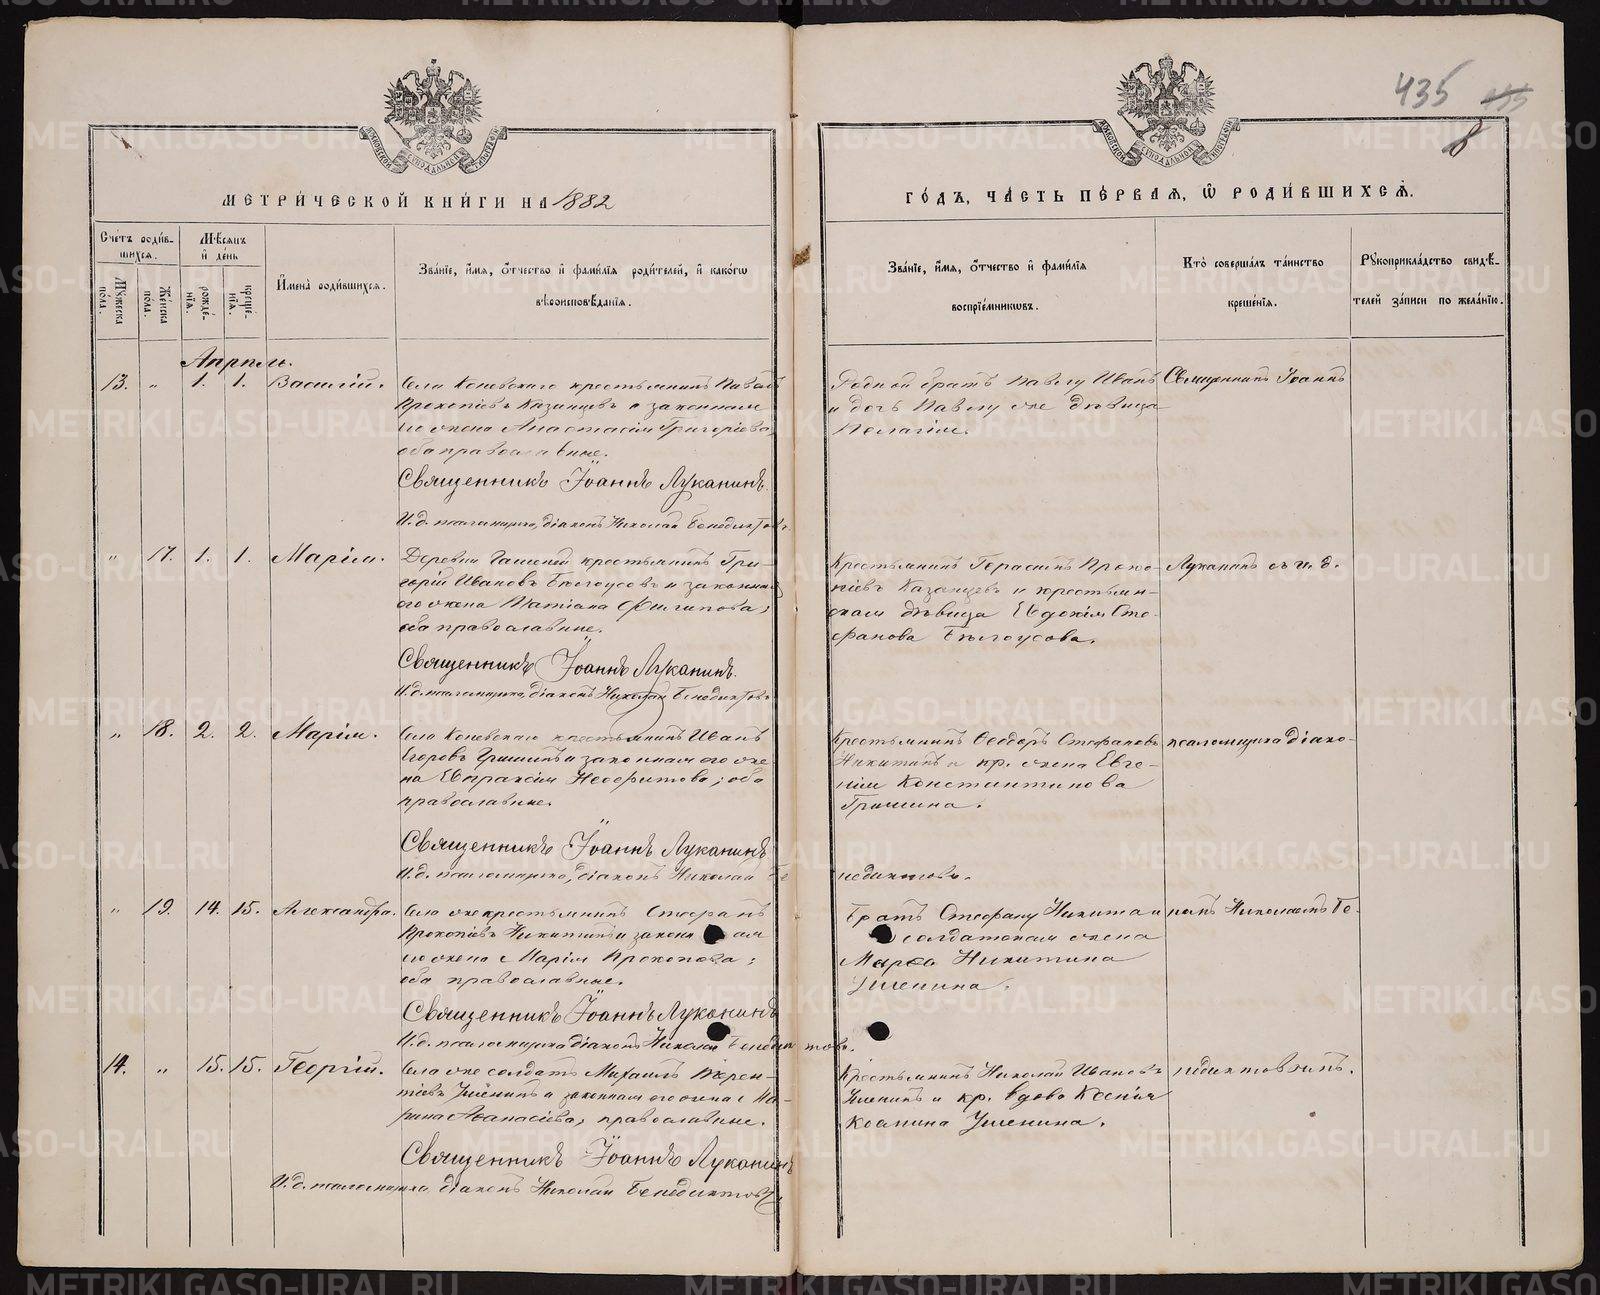 435
8
МЕТРИ́ЧЕСКОЙ КНИ́ГИ НА 1882
ГО́ДЪ, ЧА́СТЬ ПЕ́РВАЯ, Ѽ РОДИ́ВШИХСѦ.
Сче́тъ роди́в-
шихсѧ.
Мѣ́сѧцъ
и҆ де́нь
Мꙋ́жеска по́ла.
Же́нска по́ла.
рожде́-
нїѧ.
креще́-
нїѧ.
И҆мена̀ роди́вшихсѧ.
Зва́нїе, и҆́мѧ, ѻ҆́тчество и҆ фами́лїѧ роди́телей, и҆ како́гѡ
вѣроисповѣ́данїѧ.
Зва́нїе, и҆́мѧ, ѻ҆́тчество и҆ фами́лїѧ
воспрїе́мникѡвъ.
Кто̀ соверша́лъ та́инство
креще́нїѧ.
Рꙋкоприкла́дство свидѣ́-
телей за́писи по жела́нїю.
Апрѣль.
13. " 1. 1. Василій. Села Коневскаго крестьянинъ Павелъ
Прокопіевъ Казанцевъ и законная
его жена Анастасія Григорьева,
оба православные.
Священникъ Іоаннъ Луканинъ.
И.д. псаломщика, діаконъ Николай Бенедиктовъ
Родной братъ Павлу Иванъ
и дочь Павлу же дѣвица
Пелагія.
Священникъ Іоаннъ
" 17. 1. 1. Марія. Деревни крестьянинъ Гри-
горій Ивановъ Бѣлоусовъ и законная
его жена Татіана Филипова,
оба православные.
Священникъ Іоаннъ Луканинъ.
И.д. псаломщика, діаконъ Николай Бенедиктовъ
Крестьянинъ Герасимъ Проко-
піевъ Казанцевъ и крестьян-
ская дѣвица Евдокія Сте-
фанова Бѣлоусова.
Луканинъ съ и. д.
" 18. 2. 2. Марія. Села Коневскаго крестьянинъ Иванъ
Егоровъ Гришинъ и законная его же-
на Евпраксія Неофитова; оба
православные.
Священникъ Іоаннъ Луканинъ
И.д. псаломщика, діаконъ Николай Бе
недиктовъ.
Крестьянинъ Ѳеодоръ Стефановъ
Никитинъ и кр. жена Евге-
нія Константинова
Гришина.
псаломщика діако-
" 19. 14. 15. Александра. Села же крестьянинъ Стефанъ
Прокопіевъ Никитинъ и законная
его жена Марія Прокопова;
оба православные.
Священникъ Іоаннъ Луканинъ
И.д. псаломщика діаконъ Николай Бенедиктовъ.
Братъ Стефану Никита и
солдатская жена
Марѳа Никитина
Ушенина.
номъ Николаемъ Бе-
14. " 15. 15. Георгій. Села же солдатъ Михаилъ Терен-
тіевъ Ушенинъ и законная его жена Ма-
рина Аѳанасіева, православные.
Священникъ Іоаннъ Луканинъ
И.д. псаломщика діаконъ Николай Бенедиктовъ
Крестьянинъ Николай Ивановъ
Ушенинъ и кр. вдова Ксенія
Ушенина.
недиктовымъ.